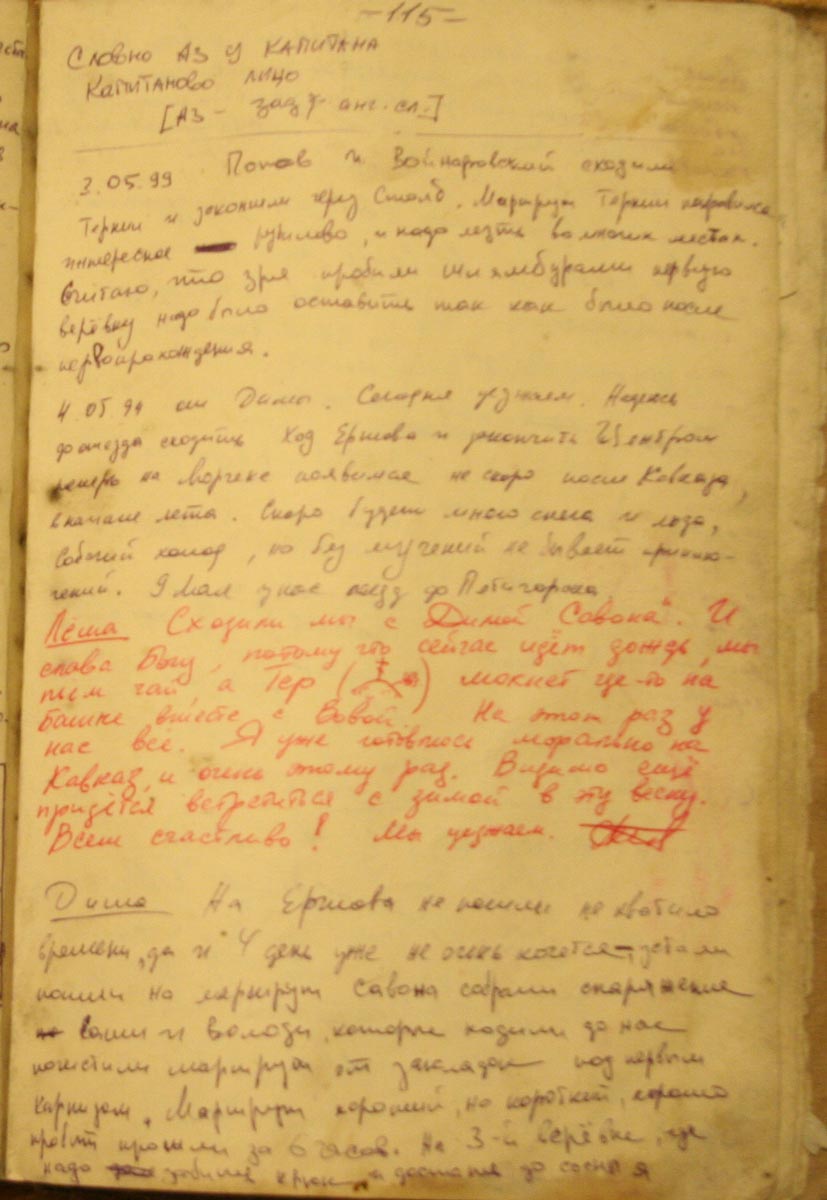 -115-
Словно АЗ у КАПИТАНА
Капитаново лицо
[АЗ - зад анг. сл.]
3.05.99 Попов и Войнаровский сходили
Теркии и закончили через Столб. Маршрут Теркии понравился
интересное рулилово, и надо лезть во многих местах.
Считаю, что зря пробили шлямбурами первую
верёвку надо было оставить так как было после
первопрохождения.
4.05.99 от Димы. Сегодня уезжаем. Надеюсь
до отъезда сходить Ход Ершова и закончить Центром
теперь на Морчеке появимся не скоро после Кавказа,
вначале лета. Скоро будет много снега и льда,
Собачий холод, но без мучений не бывает приклю-
чений. 9 мая у нас поезд до Пятигорска
Лёша Сходили мы с Димой "Савона". И
слава Богу, потому что сейчас идёт дождь, мы
пьём чай, а Тер ( ) мокнет где-то на
башке вместе с Вовой. На этот раз у
нас всё. Я уже готовлюсь морально на
Кавказ, и очень этому рад. Видимо ещё
придётся встретиться с зимой в эту весну.
Всем счастливо! Мы уезжаем.
Дима На Ершова не пошли не хватило
времени, да и 4 день уже не очень хочется, устали
пошли на маршрут Савона собрали снаряжение
Саши и Володи, которые ходили до нас
почистили маршрут от закладок под первым
карнизом. Маршрут хороший, но короткий, хорошо
пробит прошли за 6 часов. На 3-й верёвке, где
надо крюк и до сосны я